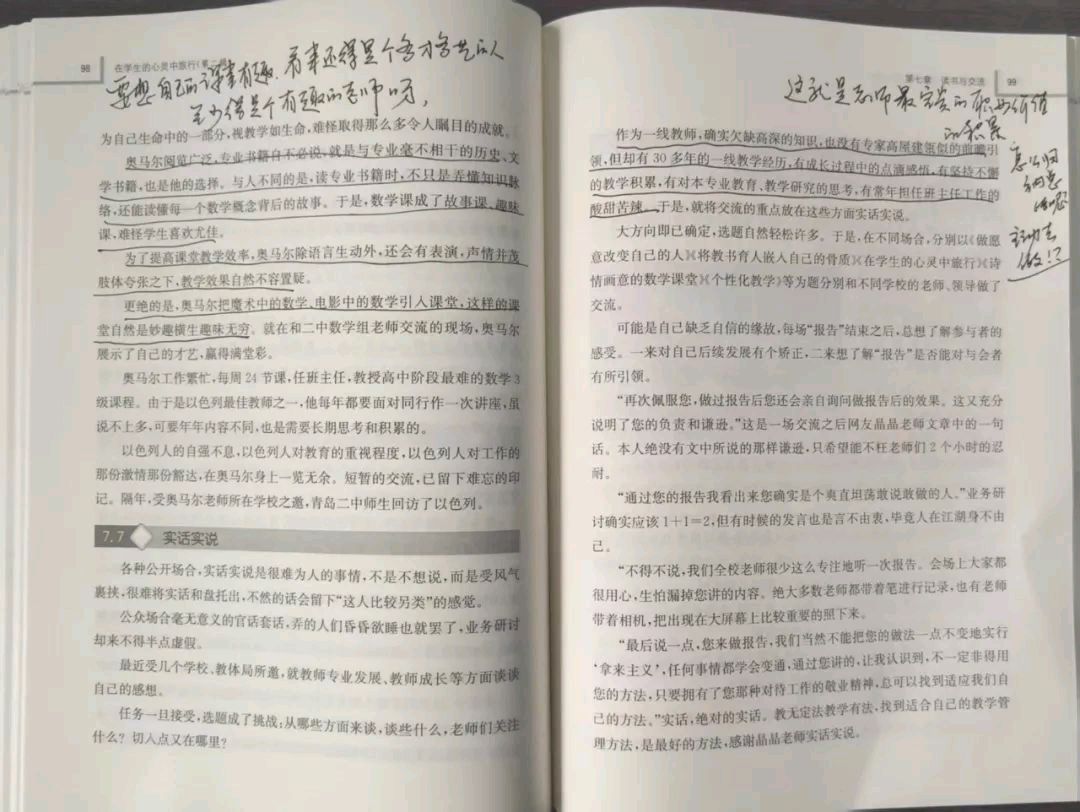 98
在学生的心灵中旅行(第二
要想自己的课堂有趣,首先还得是个多才多艺的人
至少得是个有趣的老师呀,
为自己生命中的一部分,视教学如生命,难怪取得那么多令人瞩目的成就。
奥马尔阅览广泛,专业书籍自不必说,就是与专业毫不相干的历史、文
学书籍,也是他的选择。与人不同的是,读专业书籍时,不只是弄懂知识脉
络,还能读懂每一个数学概念背后的故事。于是,数学课成了故事课、趣味
课,难怪学生喜欢尤佳。
为了提高课堂教学效率,奥马尔除语言生动外,还会有表演,声情并茂
肢体夸张之下,教学效果自然不容置疑。
更绝的是,奥马尔把魔术中的数学、电影中的数学引入课堂,这样的课
堂自然是妙趣横生趣味无穷。就在和二中数学组老师交流的现场,奥马尔
展示了自己的才艺,赢得满堂彩。
奥马尔工作繁忙,每周24节课,任班主任,教授高中阶段最难的数学3
级课程。由于是以色列最佳教师之一,他每年都要面对同行作一次讲座,虽
说不上多,可要年年内容不同,也是需要长期思考和积累的。
以色列人的自强不息,以色列人对教育的重视程度,以色列人对工作的
那份激情那份豁达,在奥马尔身上一览无余。短暂的交流,已留下难忘的印
记。隔年,受奥马尔老师所在学校之邀,青岛二中师生回访了以色列。
7.7 实话实说
各种公开场合,实话实说是很难为人的事情,不是不想说,而是受风气
裹挟,很难将实话和盘托出,不然的话会留下“这人比较另类”的感觉。
公众场合毫无意义的官话套话,弄的人们昏昏欲睡也就罢了,业务研讨
却来不得半点虚假。
最近受几个学校、教体局所邀,就教师专业发展、教师成长等方面谈谈
自己的感想。
任务一旦接受,选题成了挑战:从哪些方面来谈,谈些什么,老师们关注
什么?切入点又在哪里?
第七章 读书与交流 99
这就是老师最宝贵的职业价值
的积累
怎么归
纳总
主动去
做!?
作为一线教师,确实欠缺高深的知识,也没有专家高屋建瓴似的前瞻引
领,但却有30多年的一线教学经历,有成长过程中的点滴感悟,有坚持不懈
的教学积累,有对本专业教育、教学研究的思考,有常年担任班主任工作的
酸甜苦辣。于是,就将交流的重点放在这些方面实话实说。
大方向即已确定,选题自然轻松许多。于是,在不同场合,分别以《做愿
意改变自己的人》《将教书育人嵌入自己的骨质》《在学生的心灵中旅行》《诗
情画意的数学课堂》《个性化教学》等为题分别和不同学校的老师、领导做了
交流。
可能是自己缺乏自信的缘故,每场“报告”结束之后,总想了解参与者的
感受。一来对自己后续发展有个矫正,二来想了解“报告”是否能对与会者
有所引领。
“再次佩服您,做过报告后您还会亲自询问做报告后的效果。这又充分
说明了您的负责和谦逊。”这是一场交流之后网友晶晶老师文章中的一句
话。本人绝没有文中所说的那样谦逊,只希望能不枉老师们2个小时的忍
耐。
“通过您的报告我看出来您确实是个爽直坦荡敢说敢做的人。”业务研
讨确实应该1+1=2,但有时候的发言也是言不由衷,毕竟人在江湖身不由
己。
“不得不说,我们全校老师很少这么专注地听一次报告。会场上大家都
很用心,生怕漏掉您讲的内容。绝大多数老师都带着笔进行记录,也有老师
带着相机,把出现在大屏幕上比较重要的照下来。
“最后说一点,您来做报告,我们当然不能把您的做法一点不变地实行
‘拿来主义’,任何事情都学会变通,通过您讲的,让我认识到,不一定非得用
您的方法,只要拥有了您那种对待工作的敬业精神,总可以找到适应我们自
己的方法。”实话,绝对的实话。教无定法教学有法,找到适合自己的教学管
理方法,是最好的方法,感谢晶晶老师实话实说。